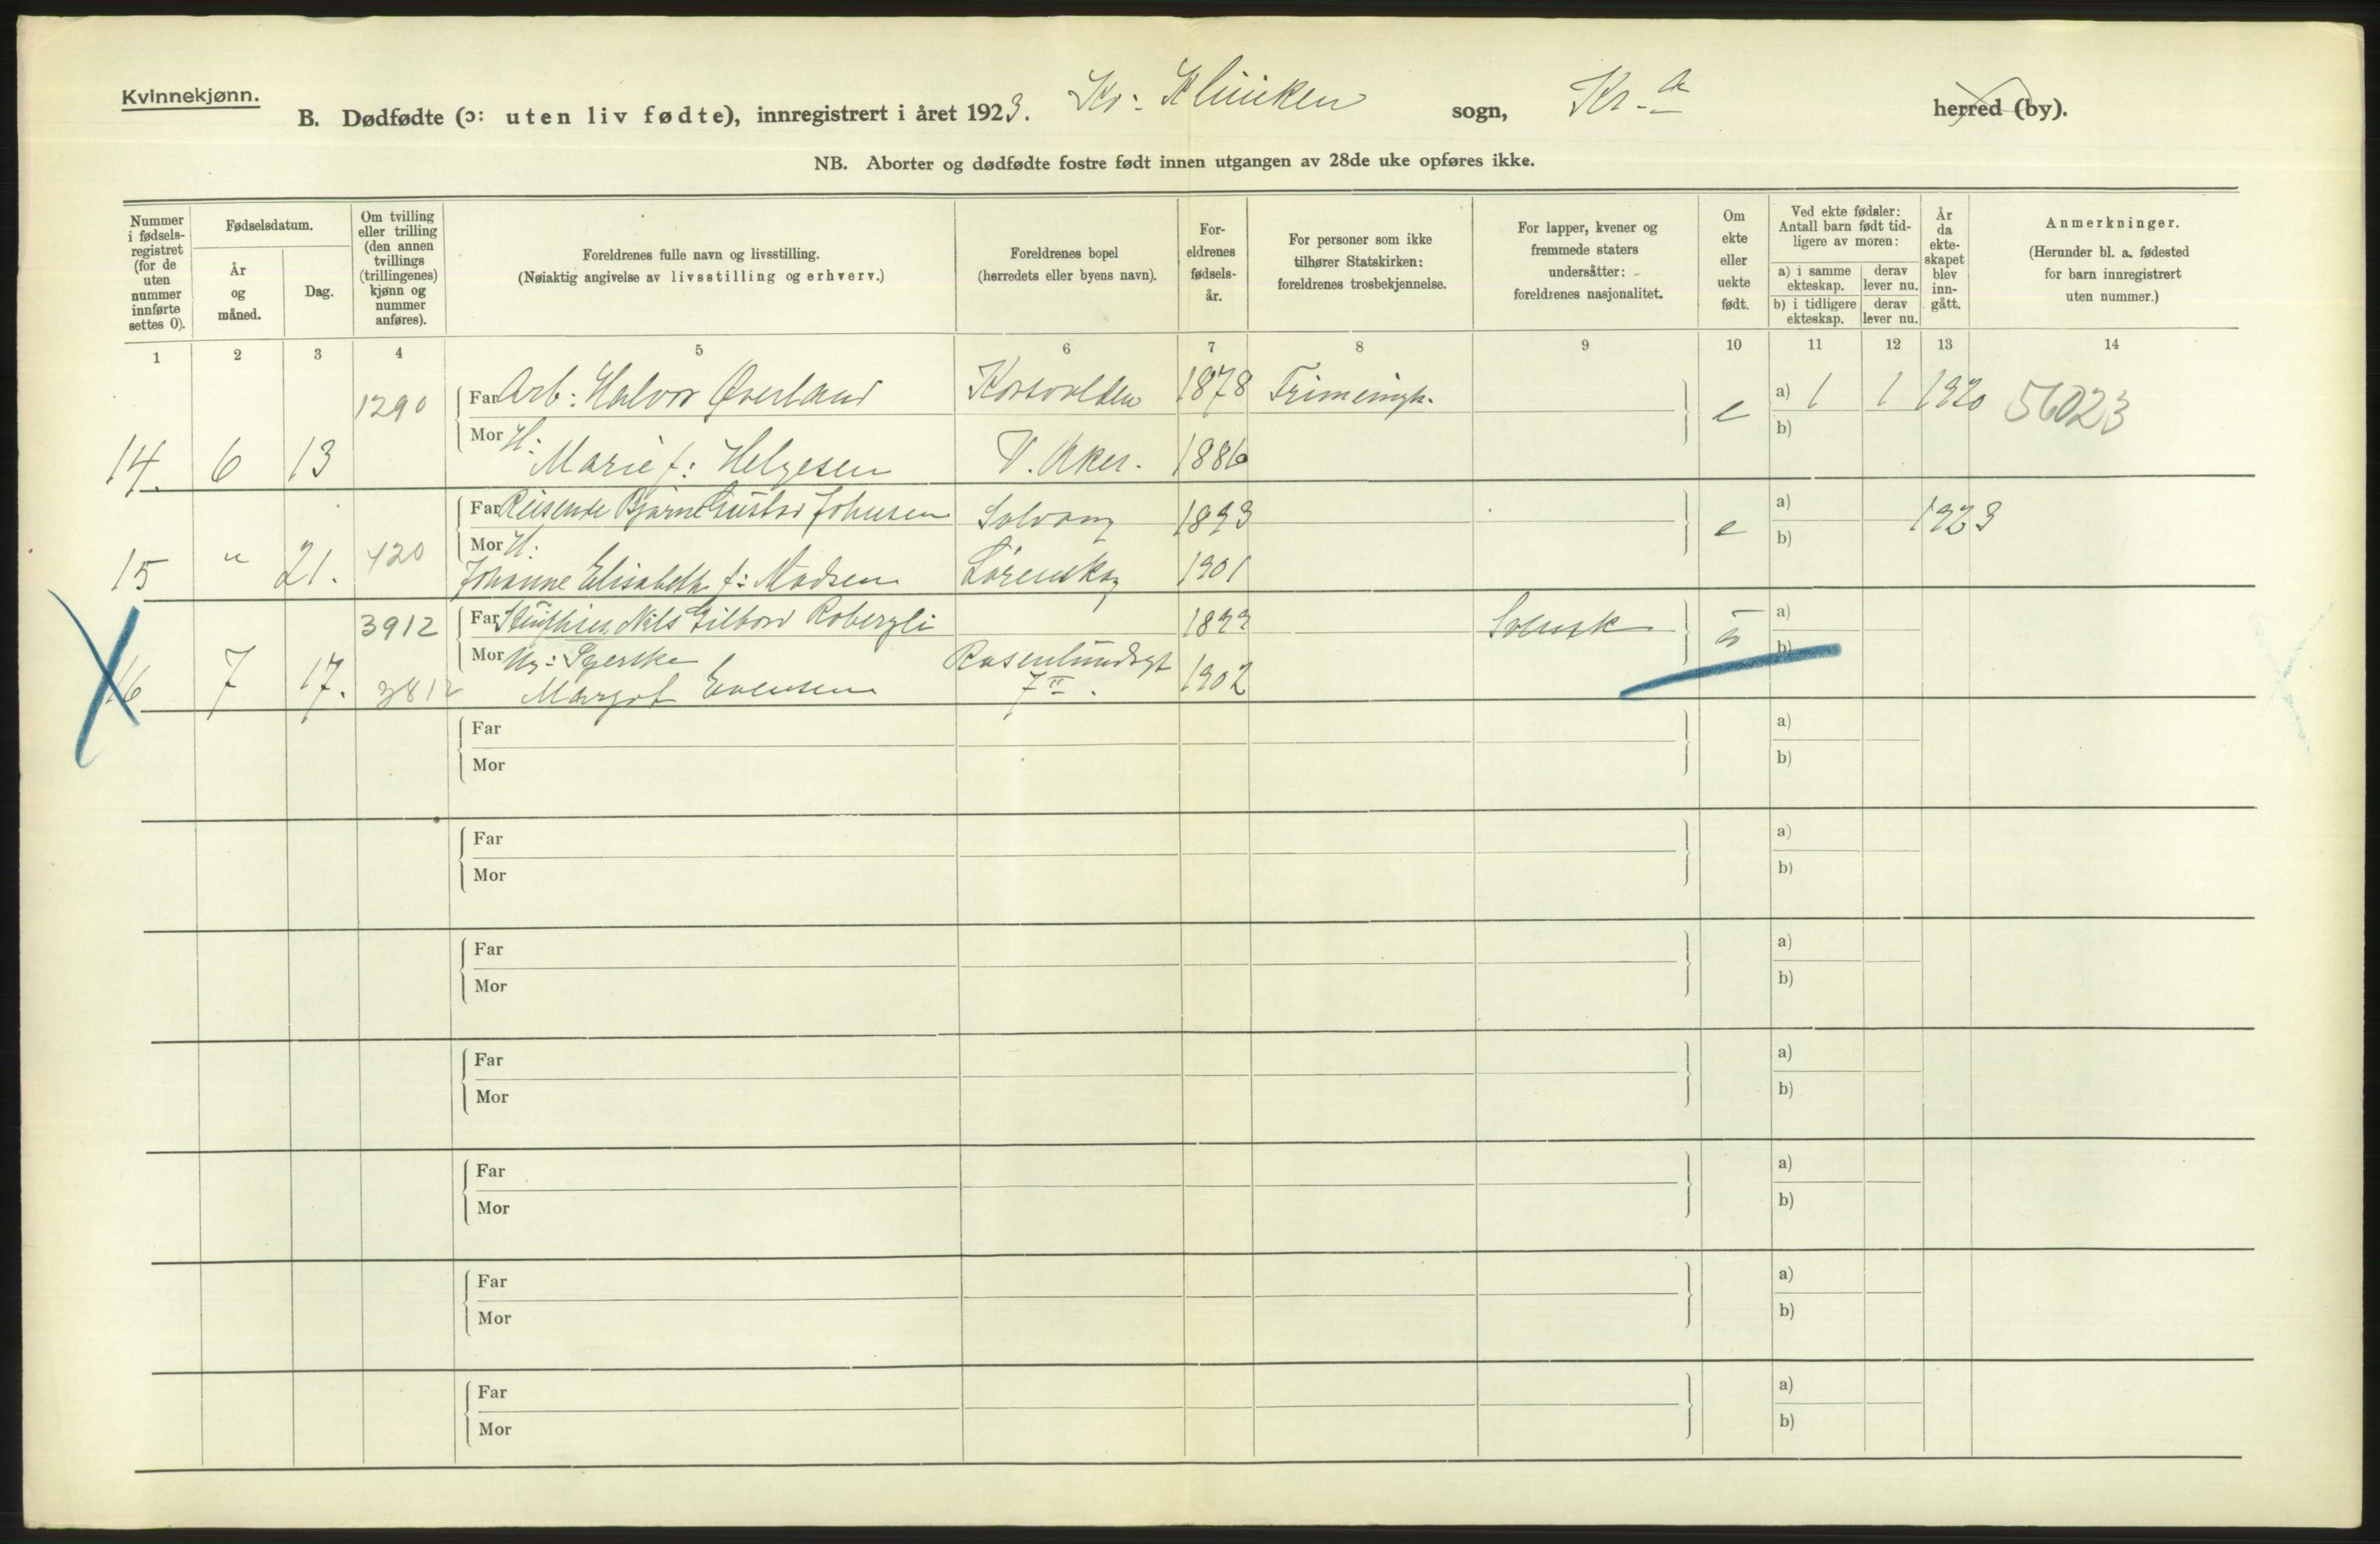 Kvinnekjønn.
B. Dødfødte (ɔ: uten liv fødte), innregistrert i året 1923. Kv: Kliniken sogn, Kr.a herred (by).
NB. Aborter og dødfødte fostre født innen utgangen av 28de uke opføres ikke.
Nummer i fødsels- registret (for de uten nummer innførte settes 0).
Fødselsdatum.
År og måned.
Dag.
Om tvilling eller trilling (den annen tvillings (trillingenes) kjønn og nummer anføres).
Foreldrenes fulle navn og livsstilling.
(Nøiaktig angivelse av livsstilling og erhverv.)
Foreldrenes bopel
(herredets eller byens navn).
For- eldrenes fødsels- år.
For personer som ikke tilhører Statskirken: foreldrenes trosbekjennelse.
For lapper, kvener og fremmede staters undersåtter: foreldrenes nasjonalitet.
Om ekte eller uekte født.
Ved ekte fødsler: Antall barn født tid- ligere av moren:
a) i samme ekteskap.
derav lever nu.
b) i tidligere ekteskap.
derav lever nu.
År da ekte- skapet blev inn- gått.
Anmerkninger.
(Herunder bl. a. fødested for barn innregistrert uten nummer.)
1 2 3 4 5 6 7 8 9 10 11 12 13 14
1290 Far Arb: Halvor Øverland 1878 e a) 1 1 1920 56023
14. 6 13 Mor H: Marie f: Helgesen V. Aker. 1886 b)
Far Reisende Bjarne Gustav Johnsen Solvang 1893 e a) 1923
15 " 21. 420 Mor H: Johanne Elisabeth f: Madsen Lørenskog 1901 b)
3912 Far Nils Robergli Svensk u a)
16 7 17. 3812 Mor Ug: Margot Evensen Rosenlundsgt 7 II. 1902 b)
Far a)
Mor b)
Far a)
Mor b)
Far a)
Mor b)
Far a)
Mor b)
Far a)
Mor b)
Far a)
Mor b)
Far a)
Mor b)